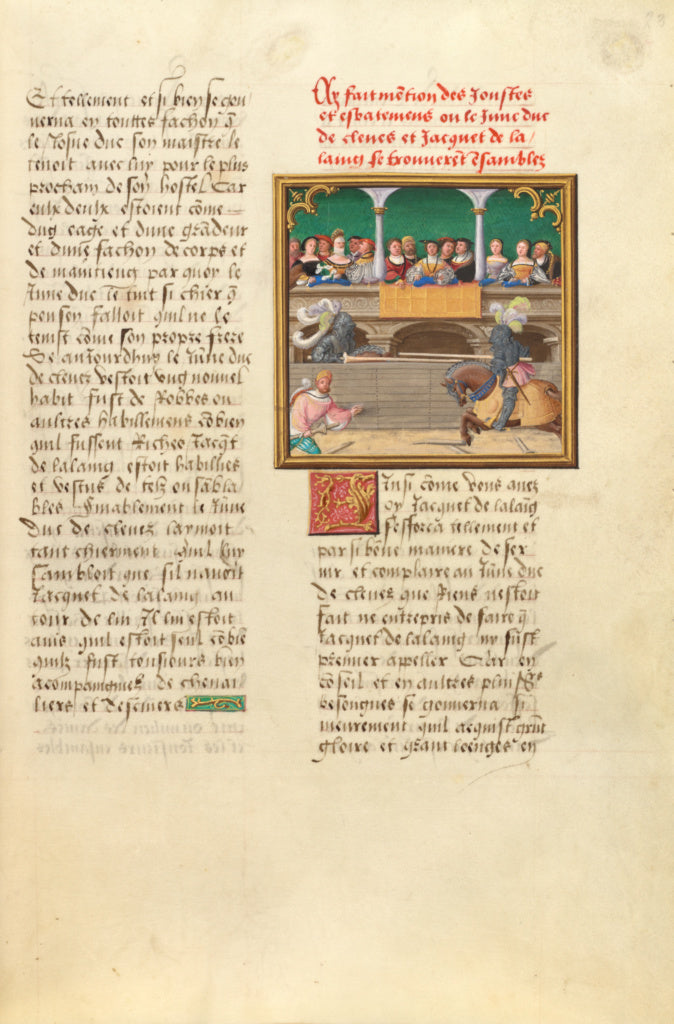 Et tellement et si bien se gou
verna en touttes fachon q̃
le Josne duc son maistre le
tenoit avec luy pour le plus
prochain de son hostel Car
eulx deulx estoient cõme
dug eage et dune grãdeur
et dune fachon de corps et
de maintieng par quoy le
June duc le tint si chier q̃
penser falloit quil ne le
tenist cõme son propre frere
Se auJourdhuy le Jũne duc
de cleves vestoit ung nouvel
habit fust de Robbes ou
aultres habillemens cõbien
quil fussent Riches Jacq̃t
de lalaing estoit habillies
et vestus de telz ou sãbla
bles Finablement le Jũne
duc de cleves laymoit
tant chierment quil luy
sambloit que sil navoit
Jacquet de lalaing au
tour de lui Il lui estoit
avis quil estoit seul cõbiẽ
quilz fust tousiours bien
acompaigniés de cheval
liers et descuiers
Cy fait mẽtion des Joustes
et esbatemens ou le June duc
de cleves et Jacquet de la
laing se trouverẽt ẽsamblez
Ainsi cõme vous avez
oy Jacquet de lalaĩg
sefforca tellement et
par si bõne maniere de ser
vir et complaire au Jũne duc
de cleves que Riens nestoit
fait ne entrepris de faire q̃
Jacquet de lalaing ny fust
premier appeller Car en
cõseil et en aultres plusrs
besongnes se gouverna si
meurement quil acquist grãt
gloire et grant loenges en